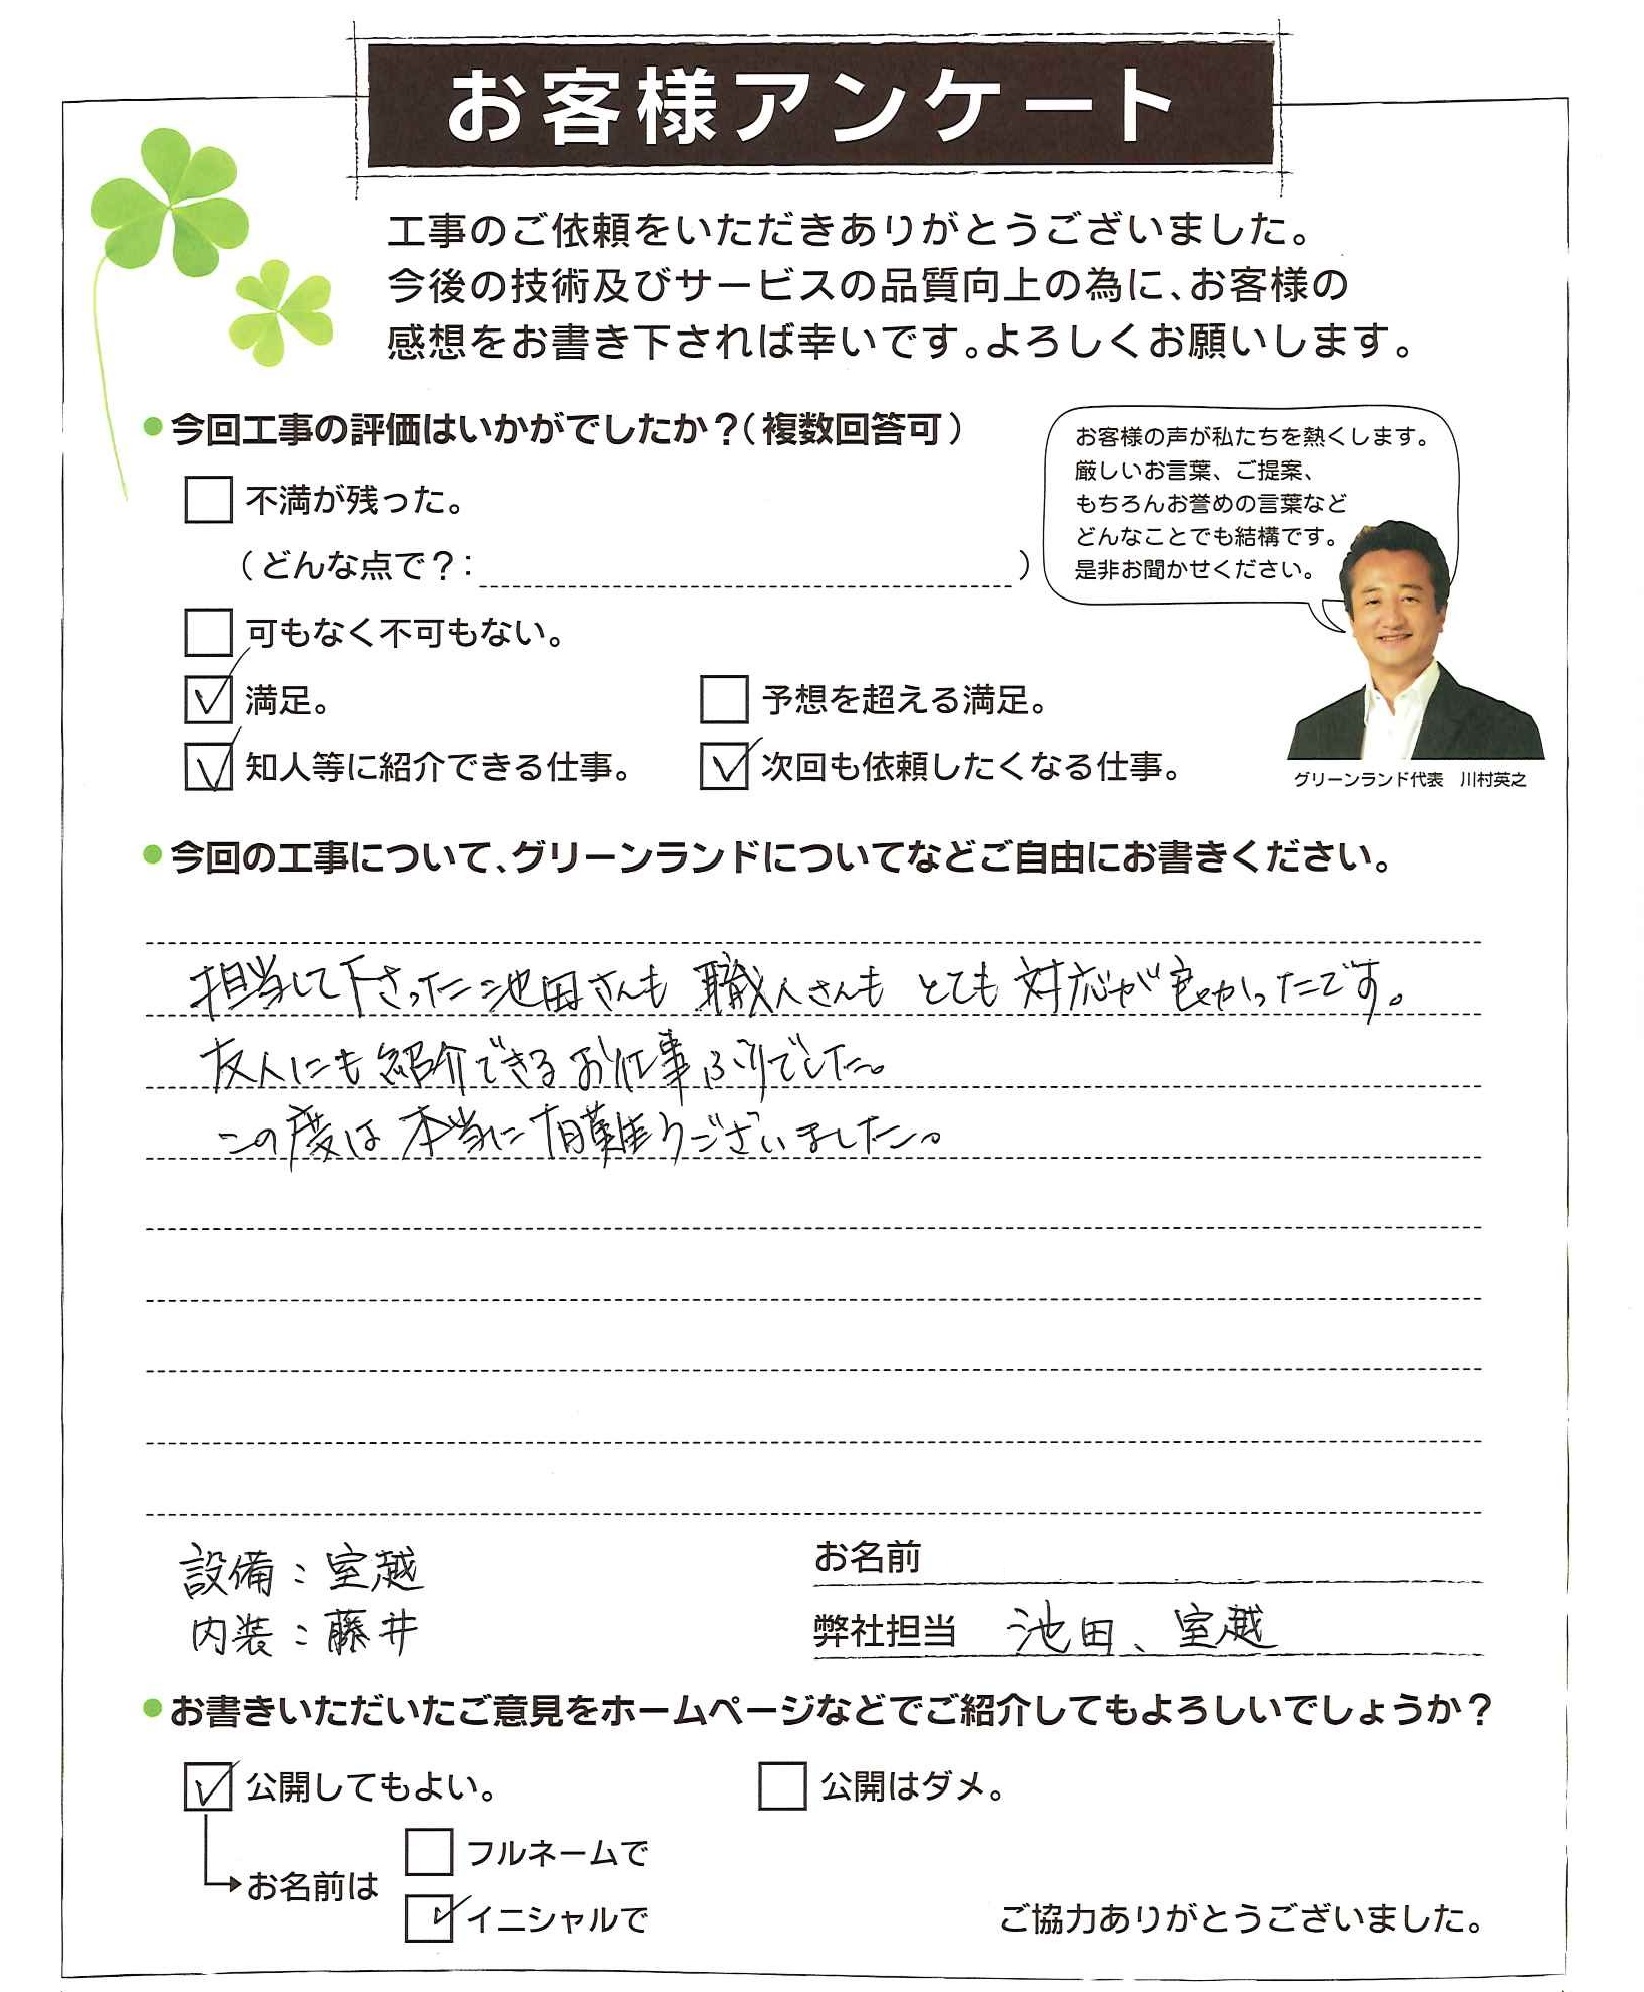 お客様アンケート
工事のご依頼をいただきありがとうございました。
今後の技術及びサービスの品質向上の為に、お客様の
感想をお書き下されば幸いです。よろしくお願いします。
●今回工事の評価はいかがでしたか？（複数回答可）
不満が残った。
（どんな点で？：　）
可もなく不可もない。
満足。
予想を超える満足。
知人等に紹介できる仕事。
次回も依頼したくなる仕事。
お客様の声が私たちを熱くします。
厳しいお言葉、ご提案、
もちろんお誉めの言葉など
どんなことでも結構です。
是非お聞かせください。
グリーンランド代表　川村英之
●今回の工事について、グリーンランドについてなどご自由にお書きください。
担当して下さった池田さんも 職人さんも とても 対応が良かったです。
友人にも紹介できるお仕事ぶりでした。
この度は 本当に有難うございました。
設備：室越
内装：藤井
お名前
弊社担当　池田、室越
●お書きいただいたご意見をホームページなどでご紹介してもよろしいでしょうか？
公開してもよい。
公開はダメ。
お名前は
フルネームで
イニシャルで
ご協力ありがとうございました。